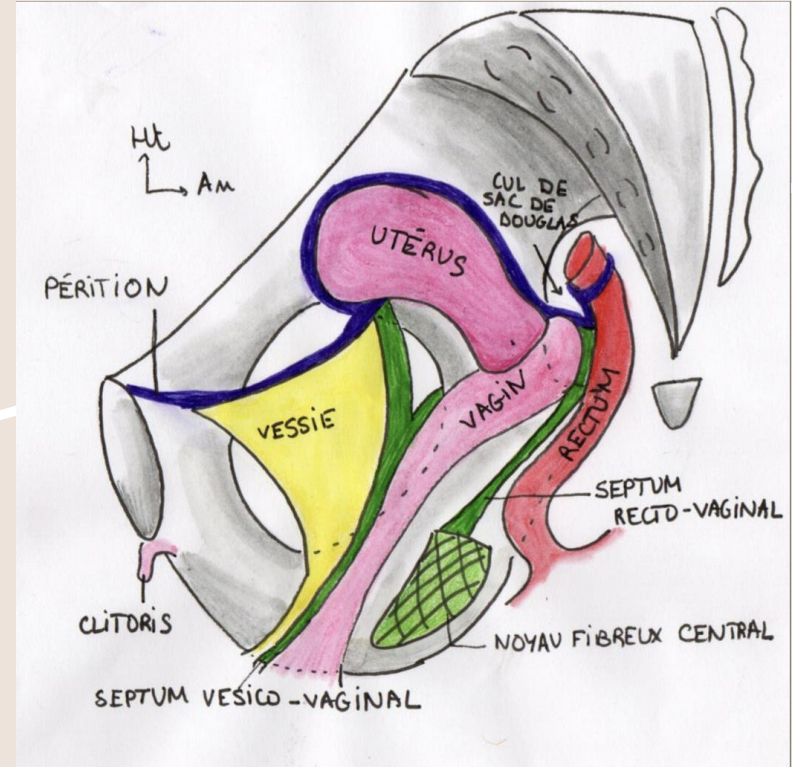 Ht
Am
CUL DE
SAC DE
DOUGLAS
UTÉRUS
PÉRITION
VESSIE
VAGIN
RECTUM
SEPTUM
RECTO-VAGINAL
CLITORIS
NOYAU FIBREUX CENTRAL
SEPTUM VESICO-VAGINAL